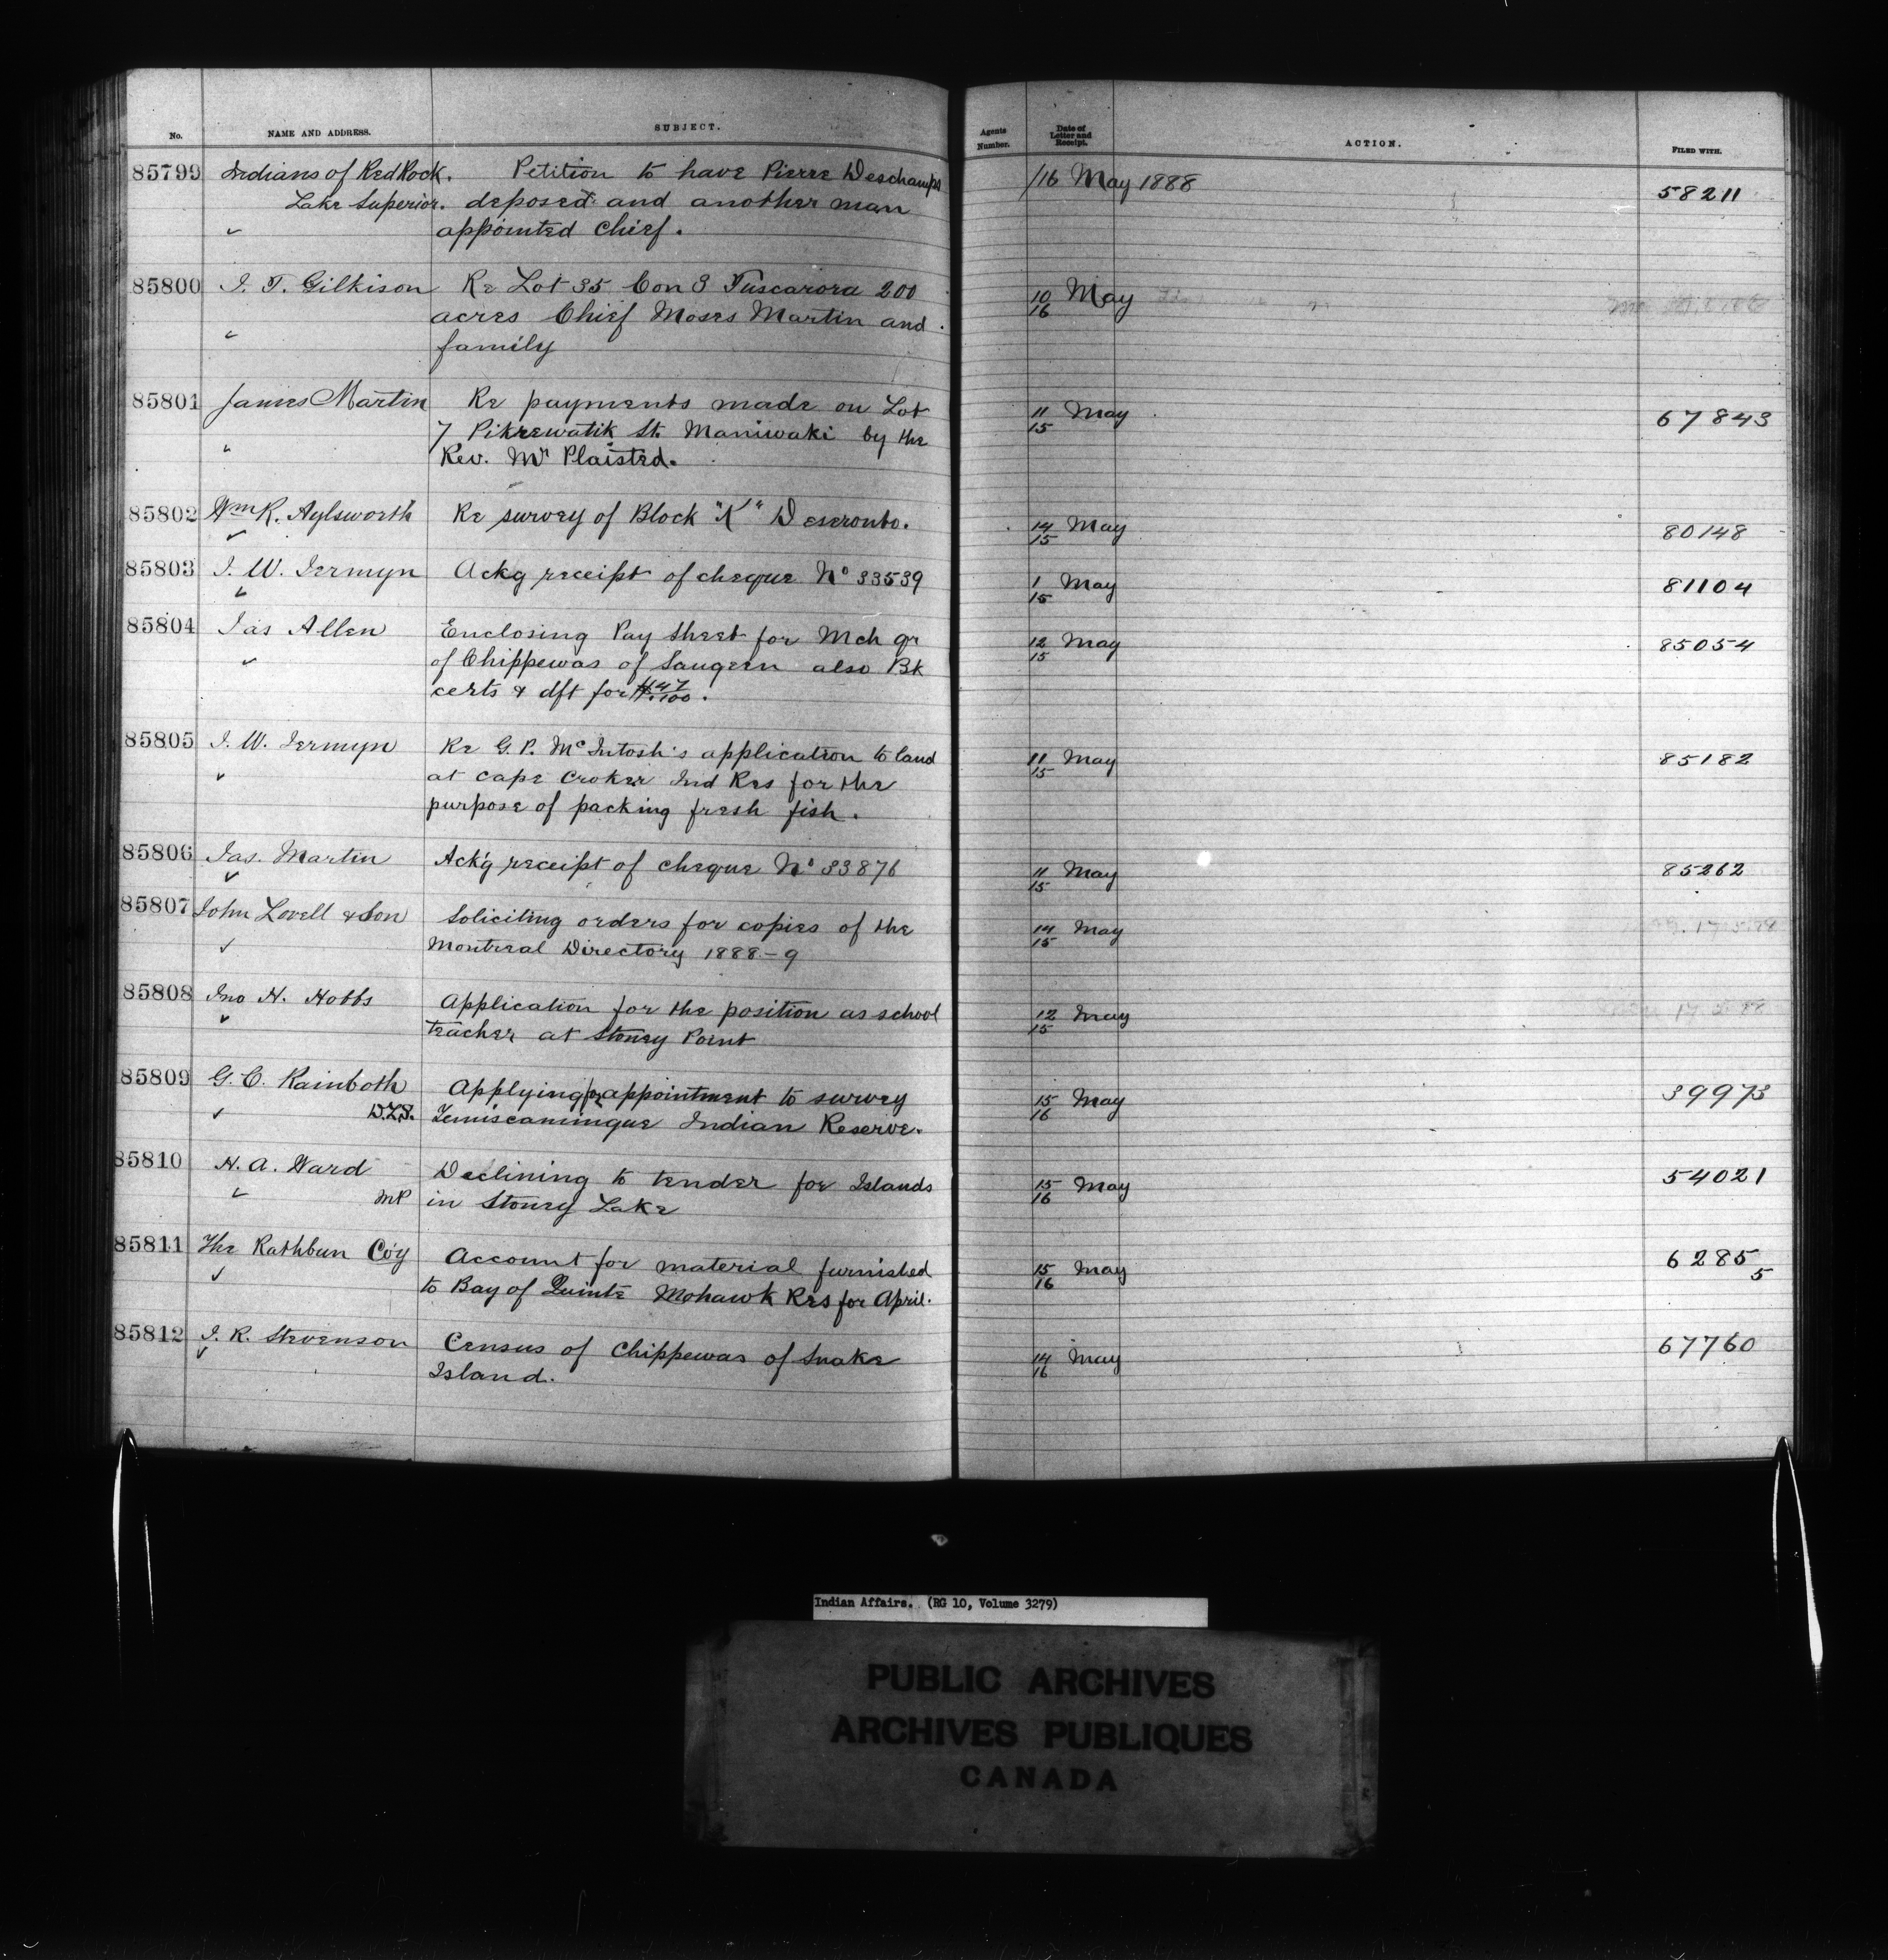 No. NAME AND ADDRESS. SUBJECT. Agents Number. Date of Letter and Receipt. ACTION. FILED WITH.
85799 Indians of Red Rock. Petition to have Pierre Deschamps /16 May 1888 58211
Lake Superior. deposed and another man
appointed Chief.
85800 J. T. Gilkison Re Lot 35 Con 3 Tuscarora 200 10/16 May
acres Chief Moses Martin and
family
85801 James Martin Re payments made on Lot 11/15 May 67843
7 Pikrewatik St. Maniwaki by the
Rev. Mr Plaisted.
85802 Wm R. Aylsworth Re survey of Block "K" Deseronto. 14/15 May 80148
85803 J. W. Jermyn Ackg receipt of cheque No 33539 1/15 May 81104
85804 Jas Allen Enclosing Pay Sheet for Mch qr 12/15 May 85054
of Chippewas of Saugeen also Bk
certs & dft for
85805 J. W. Jermyn Re G. P. McIntosh's application to land 11/15 May 85182
at Cape Croker Ind Res for the
purpose of packing fresh fish.
85806 Jas. Martin Ack'g receipt of cheque No 33876 11/15 May 85262
85807 John Lovell & Son Soliciting orders for copies of the 14/15 May
Montreal Directory 1888-9
85808 Jno H. Hobbs Application for the position as school 12/15 May
teacher at Stoney Point
85809 G. C. Rainboth Applying for appointment to survey 15/16 May 39973
D.L.S. Temiscamingue Indian Reserve.
85810 H. A. Ward Declining to tender for Islands 15/16 May 54021
MP in Stoney Lake
85811 The Rathbun Coy Account for material furnished 15/16 May 62855
to Bay of Quinte Mohawk Res for April.
85812 J. R. Stevenson Census of Chippewas of Snake 14/16 May 67760
Island.
Indian Affairs. (RG 10, Volume 3279)
PUBLIC ARCHIVES
ARCHIVES PUBLIQUES
CANADA